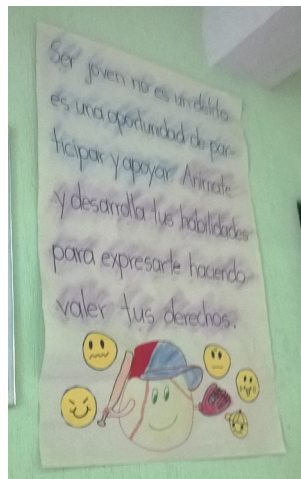 Ser joven no es un delito
es una oportunidad de par-
ticipar y apoyar. Animate
y desarrolla tus habilidades
para expresarte haciendo
valer tus derechos.